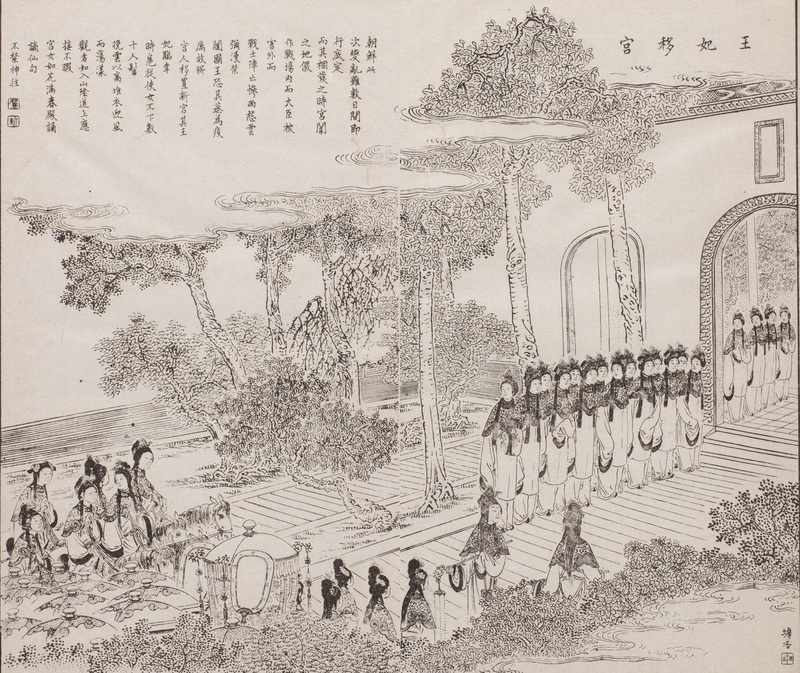 王妃移宮
朝鮮此
次變亂雖數日間即
行底定
而其相襲之時宮闈
之地儼
作戰場內而大臣被
害外而
戰士陣亡慘雨愁雲
彌漫禁
闥國王恐其
厲故將
宮人移置新宮其王
妃臨幸
時扈從侍女不下數
十人鬟
挽雲以萬堆衣迎風
而蕩漾
觀者如入山陰道上應
接不暇
宮女如花滿春殿誦
謫仙句
不禁神往
蟾香